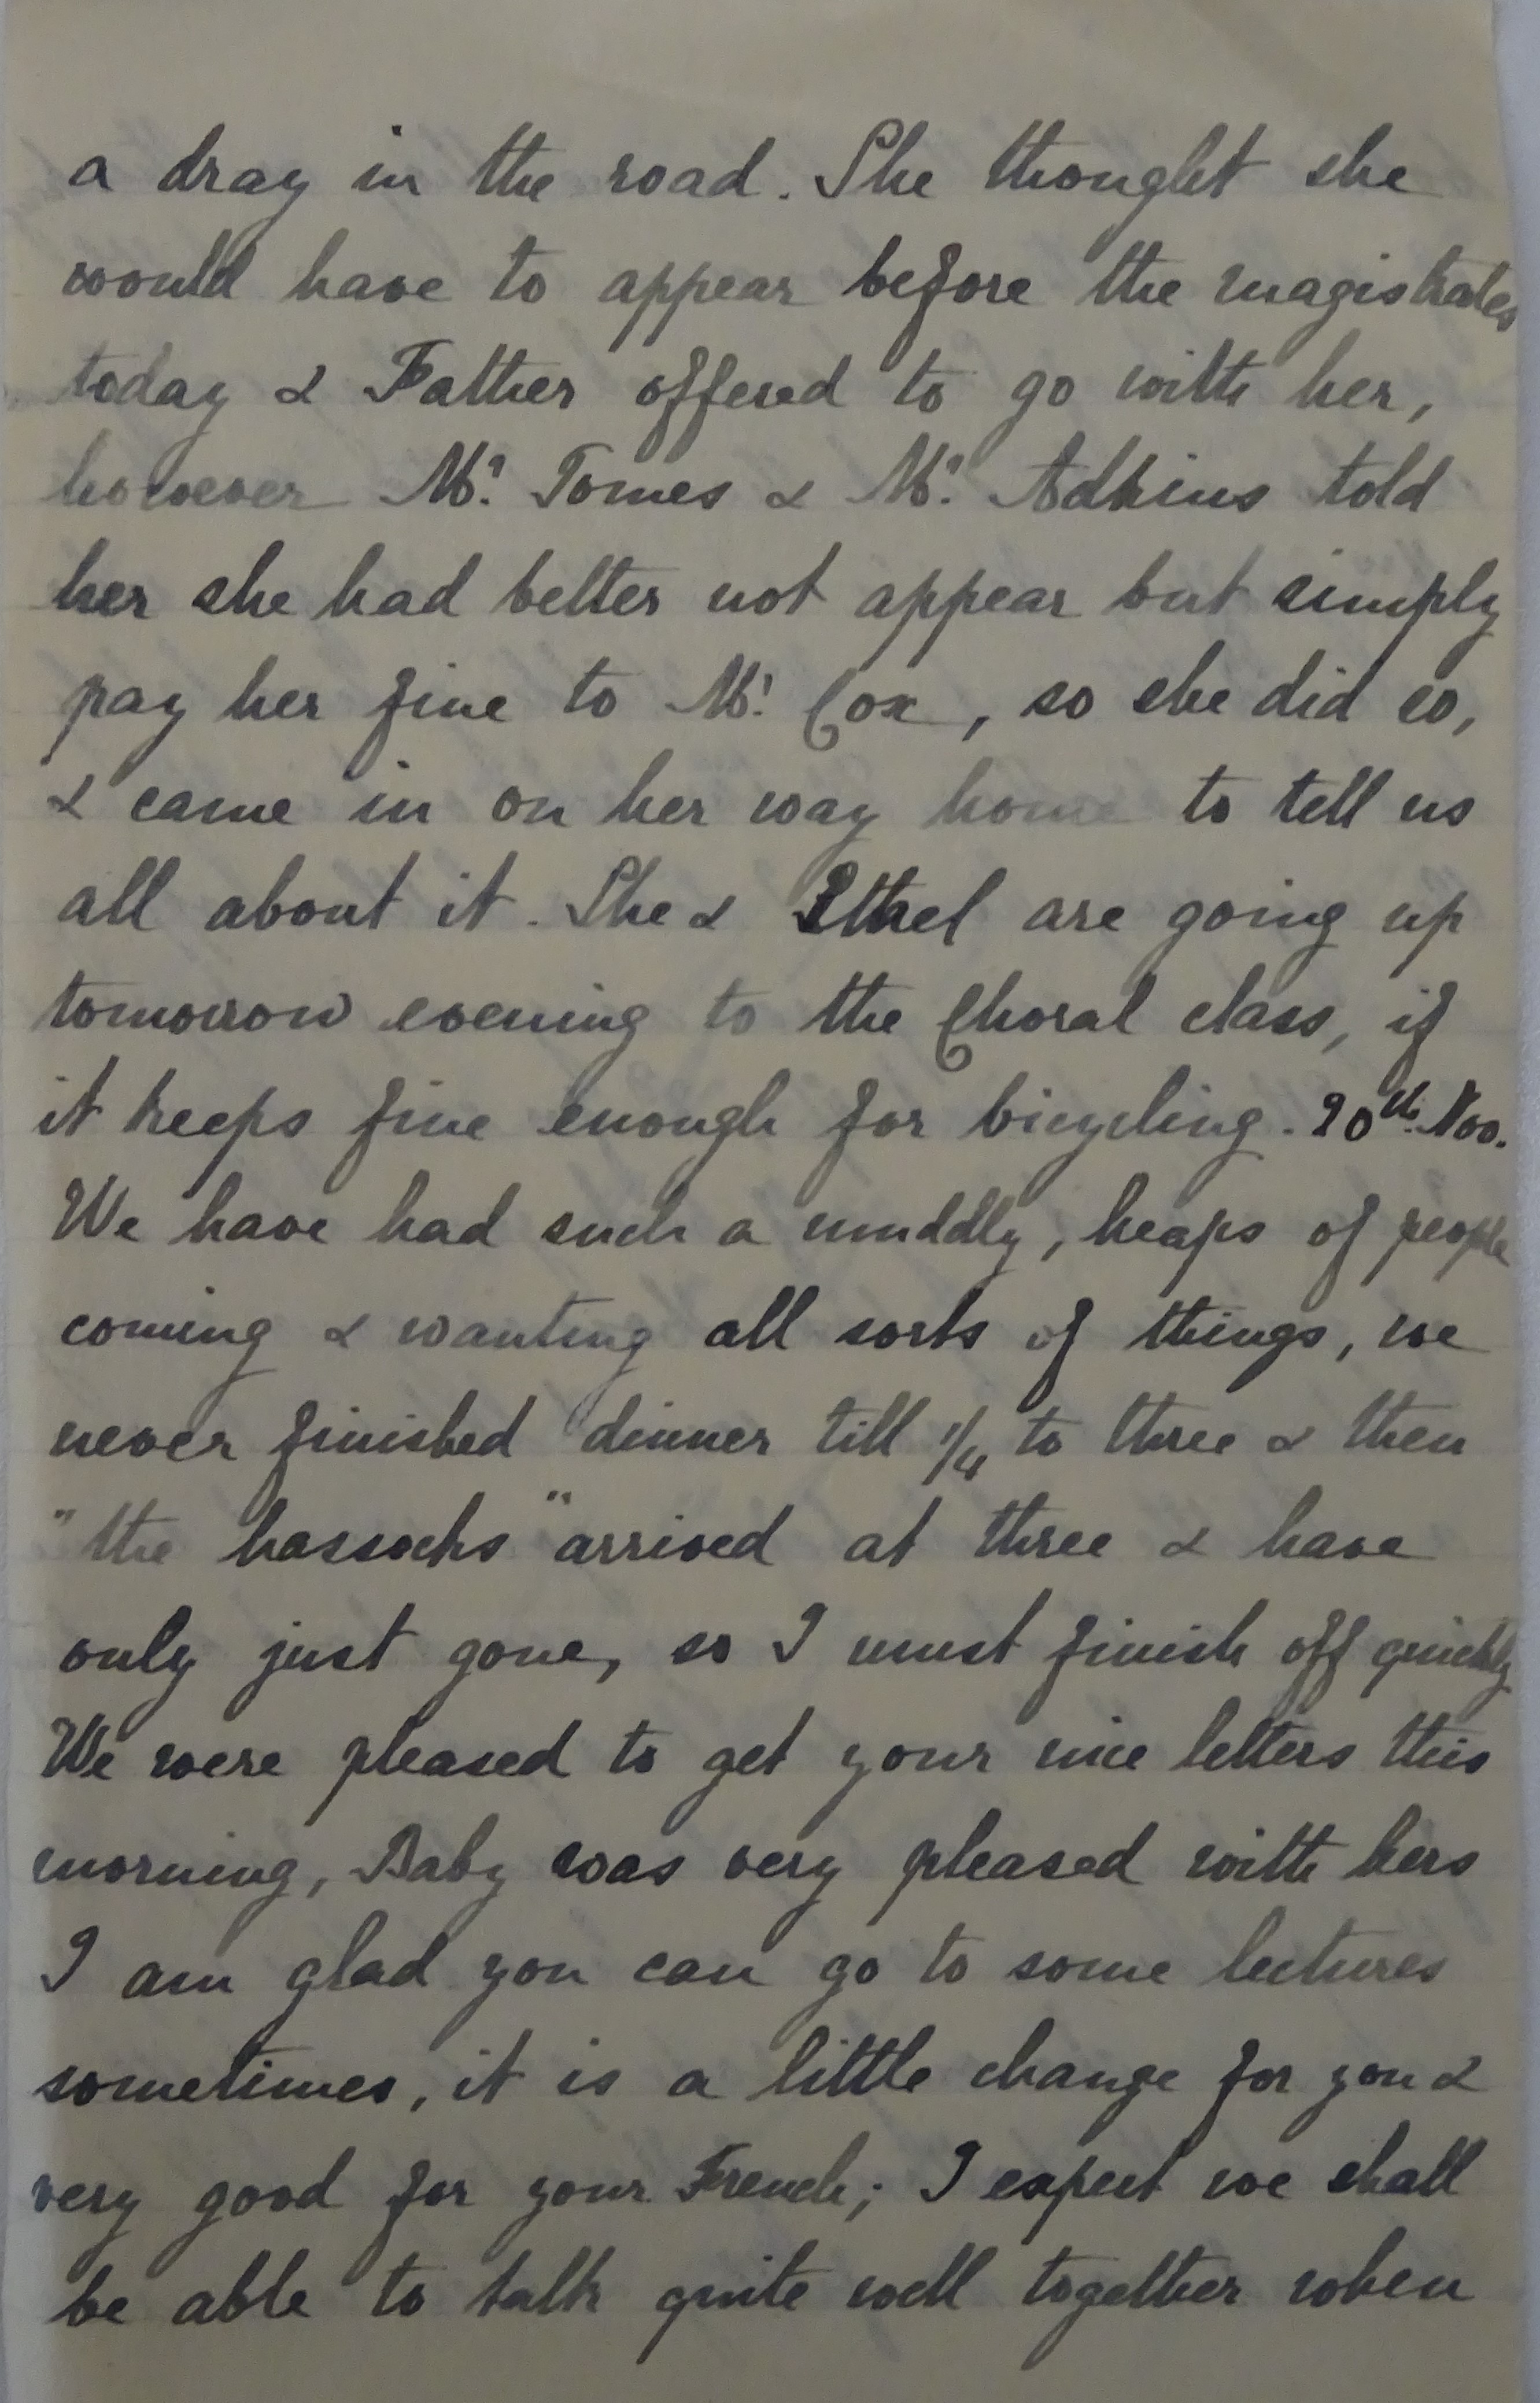 a dray in the road. She thought she
would have to appear before the magistrates
today & Father offered to go with her,
however Mr. Tomes & Mr. Adkins told
her she had better not appear but simply
pay her fine to Mr. Cox, so she did so,
& came in on her way home to tell us
all about it. She & Ethel are going up
tomorrow evening to the Choral class, if
it keeps fine enough for bicycling. 20th. Nov.
We have had such a muddly, heaps of people
coming & wanting all sorts of things, we
never finished dinner till 1/4 to three & then
"the hassocks" arrived at three & have
only just gone, so I must finish off quickly
We were pleased to get your nice letters this
morning, Baby was very pleased with hers
I am glad you can go to some lectures
sometimes, it is a little change for you &
very good for your French; I expect we shall
be able to talk quite well together when